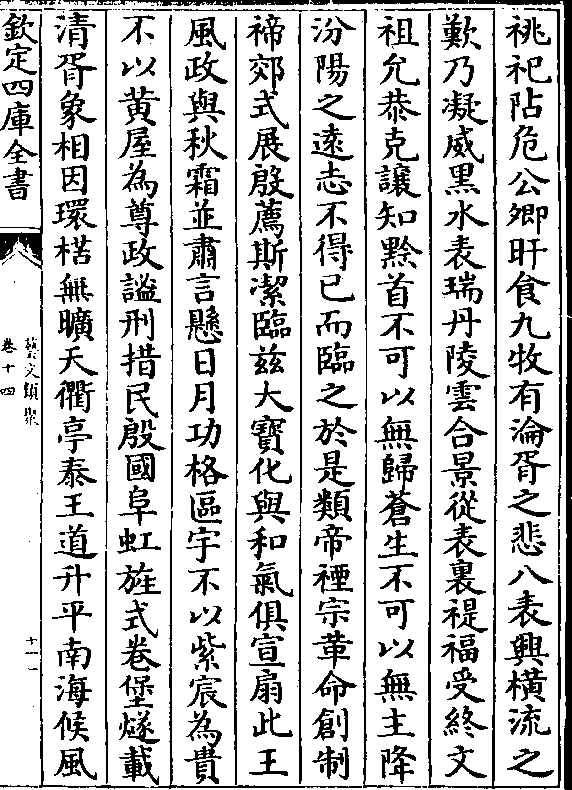 祧祀阽危公卿旰食九牧有淪胥之悲八表興橫流之
歎乃凝威黑水表瑞丹陵雲合景從表裏禔福受終文
祖允恭克讓知黔首不可以無歸蒼生不可以無主降
汾陽之遠志不得已而臨之於是類帝禋宗革命創制
禘郊式展殷薦斯潔臨兹大寶化與和氣俱宣扇此王
風政與秋霜並肅言懸日月功格區宇不以紫宸為貴
不以黄屋為尊政謐刑措民殷國阜虹旌式卷堡燧載
清胥象相因環楛無曠天衢亭泰王道升平南海候風
欽定四庫全書
藝文類聚
卷十四
十一